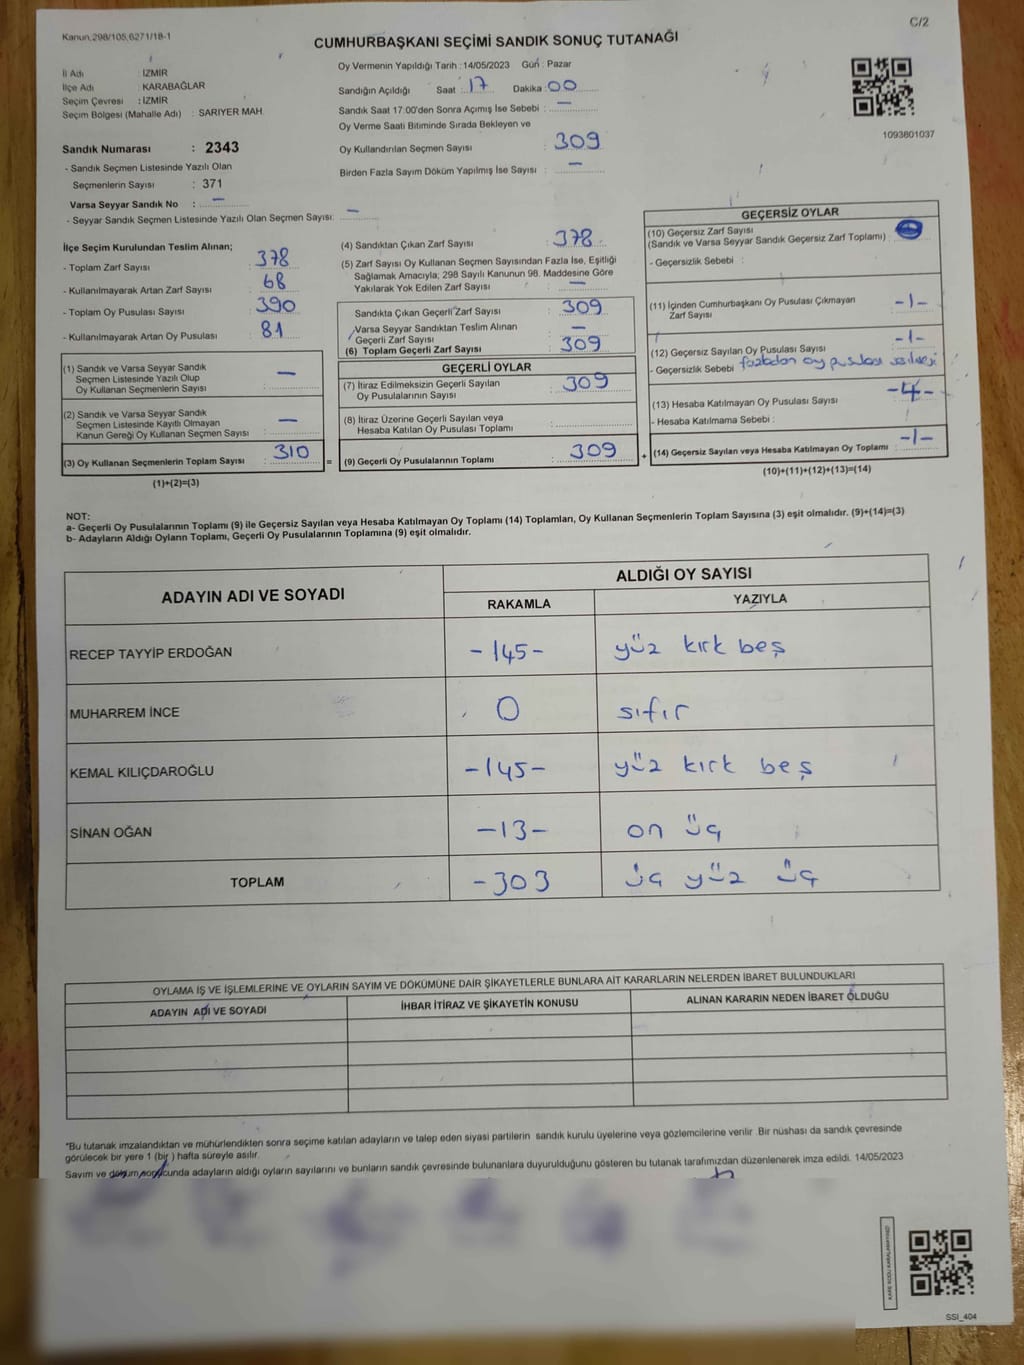 Kanun.298/105,6271/18-1
C/2
CUMHURBAŞKANI SEÇİMİ SANDIK SONUÇ TUTANAĞI
İl Adı : İZMİR
İlçe Adı : KARABAĞLAR
Seçim Çevresi : İZMİR
Seçim Bölgesi (Mahalle Adı) : SARIYER MAH.
Sandık Numarası : 2343
- Sandık Seçmen Listesinde Yazılı Olan
Seçmenlerin Sayısı : 371
Varsa Seyyar Sandık No : –
- Seyyar Sandık Seçmen Listesinde Yazılı Olan Seçmen Sayısı: –
Oy Vermenin Yapıldığı Tarih : 14/05/2023 Gün : Pazar
Sandığın Açıldığı Saat : 17 Dakika : 00
Sandık Saat 17:00'den Sonra Açımış İse Sebebi : –
Oy Verme Saati Bitiminde Sırada Bekleyen ve
Oy Kullandırılan Seçmen Sayısı : 309
Birden Fazla Sayım Döküm Yapılmış İse Sayısı : –
1093801037
İlçe Seçim Kurulundan Teslim Alınan;
- Toplam Zarf Sayısı : 378
- Kullanılmayarak Artan Zarf Sayısı : 68
- Toplam Oy Pusulası Sayısı : 390
- Kullanılmayarak Artan Oy Pusulası : 81
(1) Sandık ve Varsa Seyyar Sandık
Seçmen Listesinde Yazılı Olup
Oy Kullanan Seçmenlerin Sayısı : –
(2) Sandık ve Varsa Seyyar Sandık
Seçmen Listesinde Kayıtlı Olmayan
Kanun Gereği Oy Kullanan Seçmen Sayısı : –
(3) Oy Kullanan Seçmenlerin Toplam Sayısı : 310
(1)+(2)=(3)
(4) Sandıktan Çıkan Zarf Sayısı : 378
(5) Zarf Sayısı Oy Kullanan Seçmen Sayısından Fazla İse, Eşitliği
Sağlamak Amacıyla; 298 Sayılı Kanunun 98. Maddesine Göre
Yakılarak Yok Edilen Zarf Sayısı : –
Sandıkta Çıkan Geçerli Zarf Sayısı : 309
Varsa Seyyar Sandıktan Teslim Alınan
Geçerli Zarf Sayısı : –
(6) Toplam Geçerli Zarf Sayısı : 309
GEÇERLİ OYLAR
(7) İtiraz Edilmeksizin Geçerli Sayılan
Oy Pusulasının Sayısı : 309
(8) İtiraz Üzerine Geçerli Sayılan veya
Hesaba Katılan Oy Pusulası Toplamı :
= (9) Geçerli Oy Pusulalarının Toplamı : 309
GEÇERSİZ OYLAR
(10) Geçersiz Zarf Sayısı
(Sandık ve Varsa Seyyar Sandık Geçersiz Zarf Toplamı) :
- Geçersizlik Sebebi :
(11) İçinden Cumhurbaşkanı Oy Pusulası Çıkmayan
Zarf Sayısı : -1-
(12) Geçersiz Sayılan Oy Pusulası Sayısı : -1-
- Geçersizlik Sebebi : fazladan oy pusulası
(13) Hesaba Katılmayan Oy Pusulası Sayısı -4-
- Hesaba Katılmama Sebebi :
+ (14) Geçersiz Sayılan veya Hesaba Katılmayan Oy Toplamı : -1-
(10)+(11)+(12)+(13)=(14)
NOT:
a- Geçerli Oy Pusulalarının Toplamı (9) ile Geçersiz Sayılan veya Hesaba Katılmayan Oy Toplamı (14) Toplamları, Oy Kullanan Seçmenlerin Toplam Sayısına (3) eşit olmalıdır. (9)+(14)=(3)
b- Adayların Aldığı Oyların Toplamı, Geçerli Oy Pusulalarının Toplamına (9) eşit olmalıdır.
ADAYIN ADI VE SOYADI ALDIĞI OY SAYISI
RAKAMLA YAZIYLA
RECEP TAYYİP ERDOĞAN -145- yüz kırk beş
MUHARREM İNCE 0 sıfır
KEMAL KILIÇDAROĞLU -145- yüz kırk beş
SİNAN OĞAN -13- on üç
TOPLAM -303 üç yüz üç
OYLAMA İŞ VE İŞLEMLERİNE VE OYLARIN SAYIM VE DÖKÜMÜNE DAİR ŞİKAYETLERLE BUNLARA AİT KARARLARIN NELERDEN İBARET BULUNDUKLARI
ADAYIN ADI VE SOYADI İHBAR İTİRAZ VE ŞİKAYETİN KONUSU ALINAN KARARIN NEDEN İBARET OLDUĞU
*Bu tutanak imzalandıktan ve mühürlendikten sonra seçime katılan adayların ve talep eden siyasi partilerin sandık kurulu üyelerine veya gözlemcilerine verilir. Bir nüshası da sandık çevresinde
görülecek bir yere 1 (bir) hafta süreyle asılır.
Sayım ve döküm sonucunda adayların aldığı oyların sayılarını ve bunların sandık çevresinde bulunanlara duyurulduğunu gösteren bu tutanak tarafımızdan düzenlenerek imza edildi. 14/05/2023
KARE KODU KARALAMAYINIZ!
SSI_404